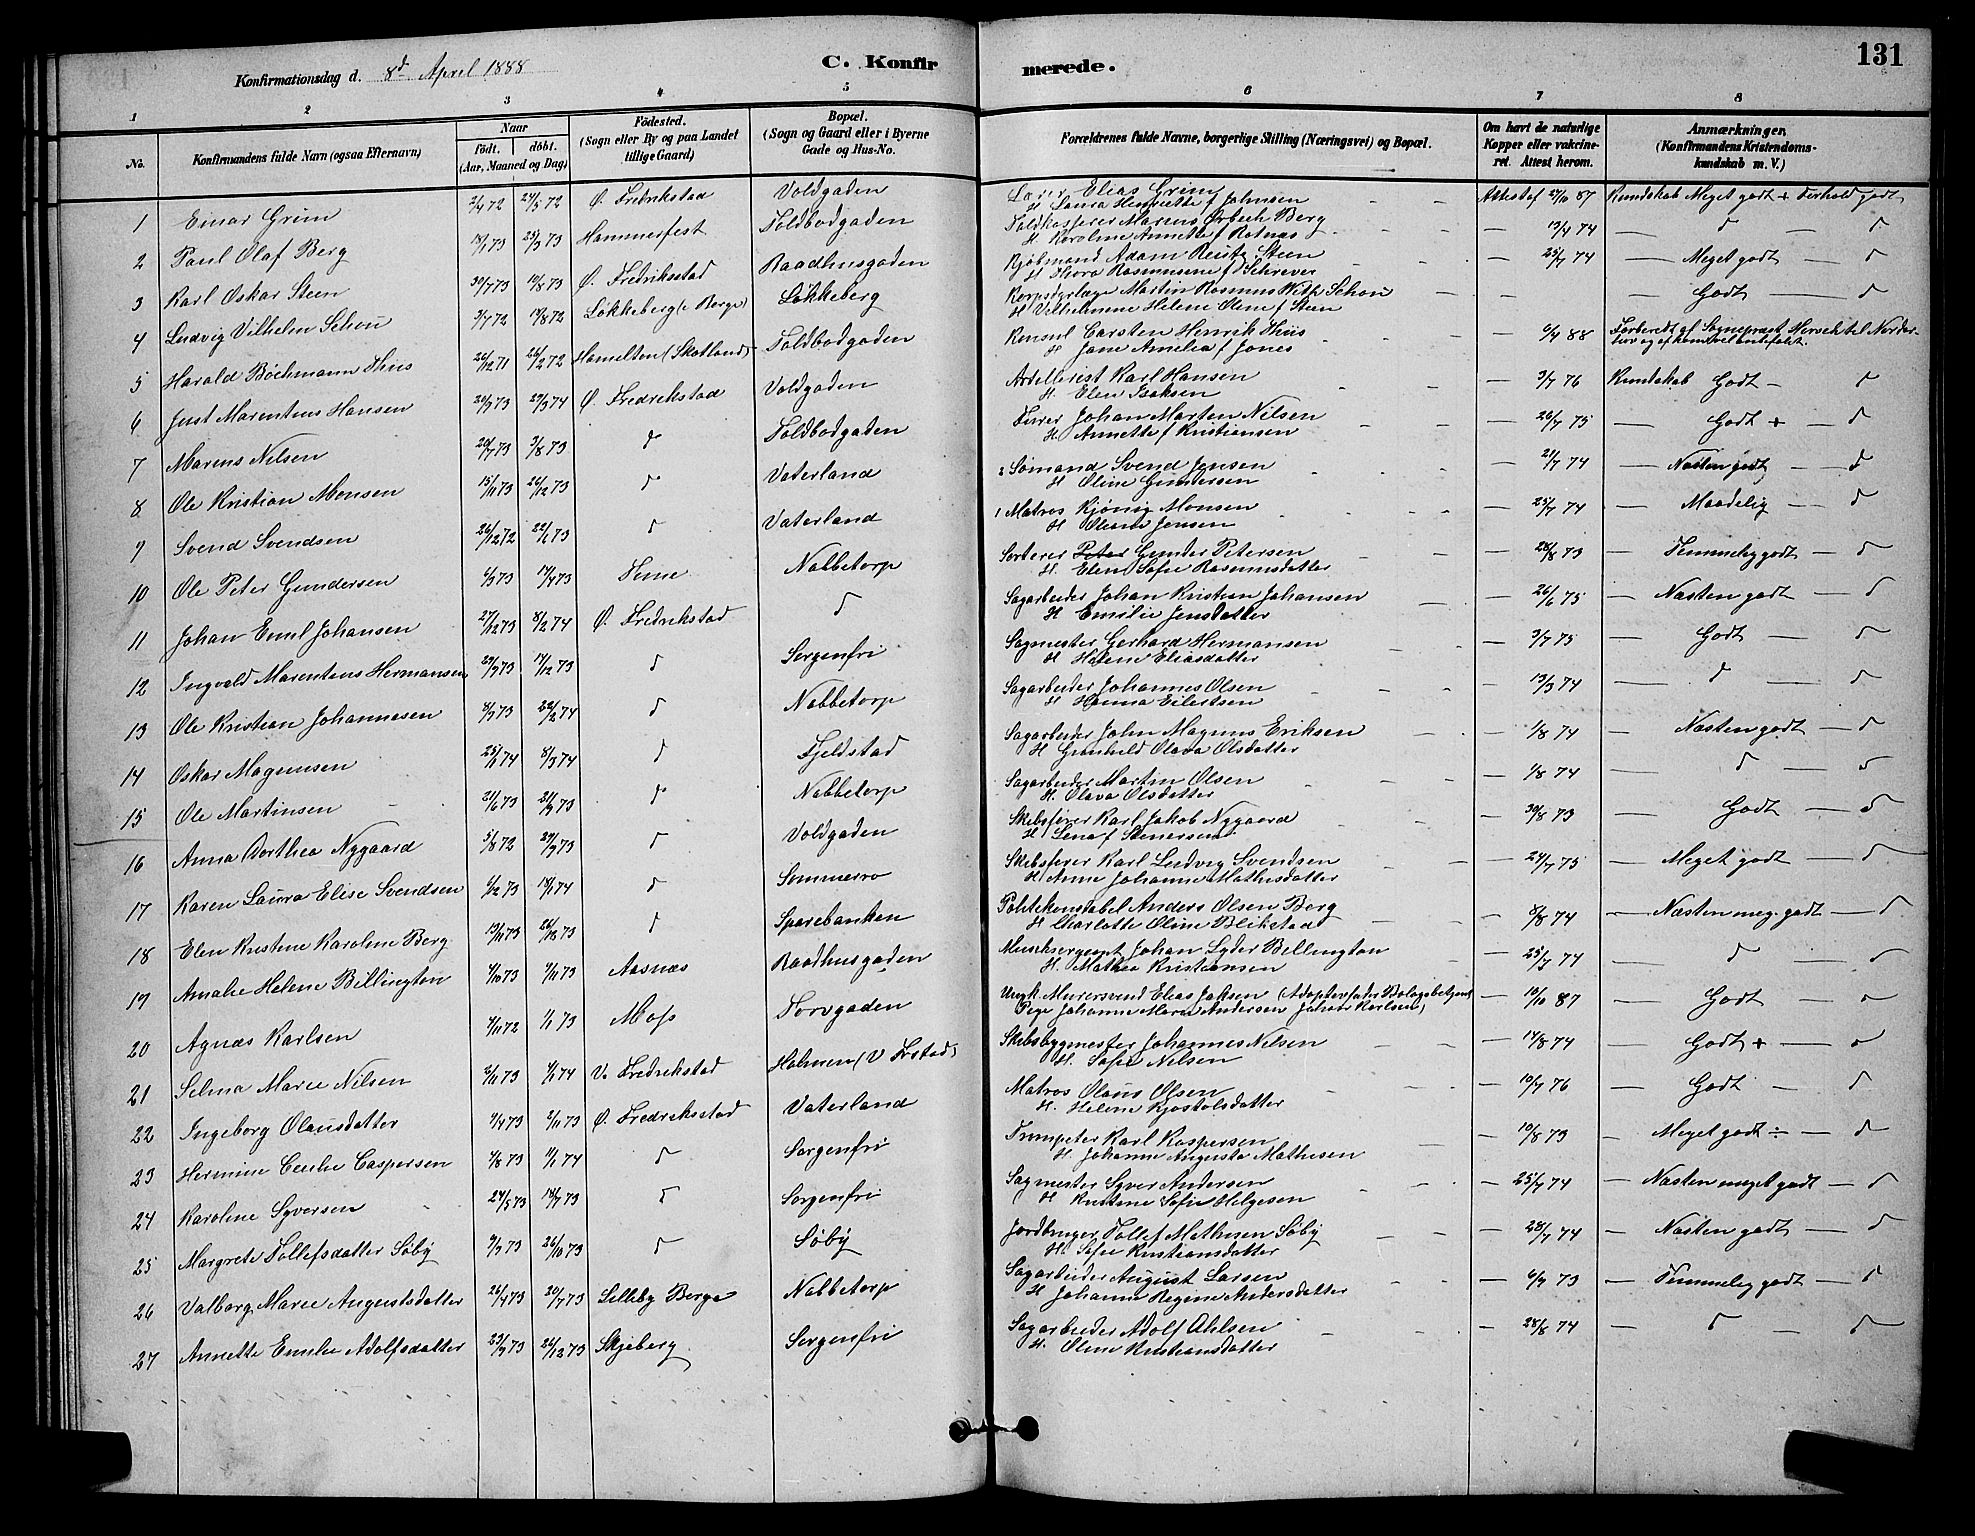 131
Konfirmationsdag d. 8d April 1888
C. Konfirmerede.
1 2 3 4 5 6 7 8
No.
Konfirmandens fulde Navn (ogsaa Efternavn)
Naar
födt. döbt.
(Aar, Maaned og Dag)
Födested.
(Sogn eller By og paa Landet
tillige Gaard)
Bopæl.
(Sogn og Gaard eller i Byerne
Gade og Hus-No.
Forældrenes fulde Navne, borgerlige Stilling (Næringsvei) og Bopæl.
Om havt de naturlige
Kopper eller vakcine-
ret. Attest herom.
Anmærkninger.
(Konfirmandens Kristendoms-
kundskab m. V.)
1 Einar Grim 2/4 72 24/5 72 Ø. Fredrikstad Voldgaden Elias Grim H. Laura Henriette f Johnsen Attest af 29/10 87 Kundskab Meget godt + Forhold godt
2 Paul Olaf Berg 18/1 73 23/3 73 Hammerfest Toldbodgaden Toldkasserer Marius Ørbech Berg H. Karoline Annette f Rotnæs — 13/4 74 — d — d
3 Karl Oskar Steen 30/7 73 10/8 73 Ø. Fredriksstad Raadhusgaden Kjöbmand Adam Steen H Thora Rasmussine f Schrever — 25/7 74 — Meget godt — d
4 Ludvig Vilhelm Schou 3/7 72 18/8 72 Løkkeberg i Berge Løkkeberg Korpsdyrlæge Martin Rasmus With Schou H Vilhelmene Helene Oline f Steen — — Godt — d
5 Harald Böchmann Thiis 26/12 71 26/2 72 Hamelton (Skotland) Toldbodgaden Konsul Carsten Henrik Thiis H Jane Amelia f Jones — 6/4 88 Forberedt af Sognepræst
6 Just Marentius Hansen 20/9 73 29/3 74 Ø. Fredrikstad Voldgaden Artillerist Karl Hansen H. Elen Isaksen — 3/7 76 Kundskab Godt — d
7 Marius Nilsen 20/7 73 3/8 73 d Toldbodgaden Johan Morten Nilsen H. Annette f Kristiansen — 26/7 75 — Godt + — d
8 Ole Kristian Monsen 15/11 73 26/12 73 d Vaterland 2 Sømand Svend Jensen H Oline Gundersen — 21/7 74 — Næsten godt — d
9 Svend Svendsen 26/12 72 22/1 73 d Vaterland 1 Matros Monsen H Jensen — 25/7 74 — Maadelig — d
10 Ole Peter Gundersen 6/3 73 14/4 73 Nabbetorp Sorterer Peter Gunder Petersen H. Elen Sofie Rasmusdatter — 28/8 73 — Temmelig godt — d
11 Johan Emil Johansen 27/12 73 8/2 74 Ø. Fredrikstad d Sagarbeider Johan Kristian Johansen H Emilie Jensdatter — 26/6 75 — Næsten godt — d
12 Ingvald Marentius Hermansen 29/9 73 14/12 73 d Sorgenfri Sagmester Gerhard Hermansen H Helene Eliasdatter — 3/7 75 — Godt — d
13 Ole Kristian Johannesen 8/9 73 22/2 74 d Nabbetorp Sagarbeider Johannes Olsen H Hanna Eilertsen — 13/3 74 — d — d
14 Oskar Magnussen 25/1 74 8/3 74 d Fjeldstad Sagarbeider John Magnus Eriksen H Gunhild Olava Olsdatter — 1/8 74 — Næsten godt — d
15 Ole Martinsen 21/6 73 21/9 73 d Nabbetorp Sagarbeider Martin Olsen H. Olava Olsdatter — 1/8 74 — d — d
16 Anna Dorthea Nygaard 5/8 72 29/9 73 d Voldgaden Skibsfører Karl Jakob Nygaard H Lena f Stenersen — 30/8 73 — Godt — d
17 Karen Laura Elise Svendsen 6/12 73 18/1 74 d Sommerro Skibsfører Karl Ludvig Svendsen H Anne Johanne Mathisdatter — 24/7 75 — Meget godt — d
18 Elen Kristine Karoline Berg 13/11 73 26/12 73 d Sparebanken Politikonstabel Anders Olsen Berg H Charlotte Oline Blikstad — 8/8 74 — Næsten meg. godt — d
19 Amalie Helene Billington 4/10 73 9/11 73 Aasnæs Raadhusgaden Musiksergeant Johan Lyder Billington H. Mathea Kristiansen — 25/7 74 — d — d
20 Agnæs Karlsen 4/11 72 1/1 73 Moss Torvgaden Ungk. Murersvend Elias Jaksen (Adoptivfader Bolagsbetjent Pige Johanne Marie Andersen Jakob Karlsen) — 10/10 87 — Godt — d
21 Selma Marie Nilsen 2/11 73 4/1 74 V. Fredrikstad Holmen (V Frstad) Skibsbygmester Johannes Nilsen H. Sofie Nilsen — 14/8 74 — Godt + — d
22 Ingeborg Olausdatter 9/4 73 2/11 73 Ø. Fredriksstad Vaterland Matros Olaus Olsen H. Helene Kjostolsdatter — 10/7 76 — Godt — d
23 Hermine Cecilie Caspersen 4/8 73 11/1 74 d Sorgenfri Trompeter Karl Kaspersen H. Johanne Augusta Mathisen — 10/8 73 — Meget godt ÷ — d
24 Karoline Syversen 24/5 73 14/9 73 d Sorgenfri Sagmester Syver Andersen H Kristine Sofie Helgesen — 25/7 74 — Næsten meget godt — d
25 Margrete Tollefsdatter Søby 9/9 73 26/10 73 d Søby Jordbruger Tollef Mathisen Søby H. Sofie Kristiansdatter — 28/7 74 — Næsten godt — d
26 Valborg Marie Augustsdatter 26/4 73 20/7 73 Lilleby Berge Nabbetorp Sagarbeider August Larsen H Johanne Regine Andersdatter — 6/9 73 — Temmelig godt — d
27 Annette Emilie Adolfsdatter 23/9 73 26/12 73 Skjeberg Sorgenfri Sagarbeider Adolf Ahlsen H. Oline Kristiansdatter — 28/8 74 — d — d